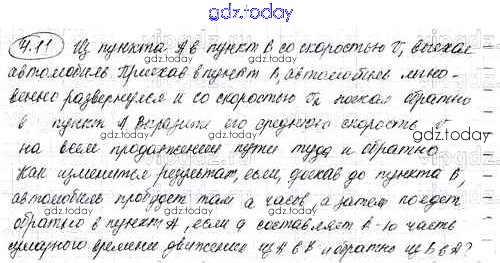 gdz.today
4.11 Из пункта А в пункт В со скоростью v₁ выехал
автомобиль. Приехав в пункт В, автомобиль мгно-
венно развернулся и со скоростью v₂ поехал обратно
в пункт А. Выразить его среднюю скорость v
на всем продолжении пути туда и обратно.
Как изменится результат, если, доехав до пункта В,
автомобиль пробудет там a часов, а затем поедет
обратно в пункт А, если a составляет k-ю часть
суммарного времени движения из А в В и обратно из В в А?